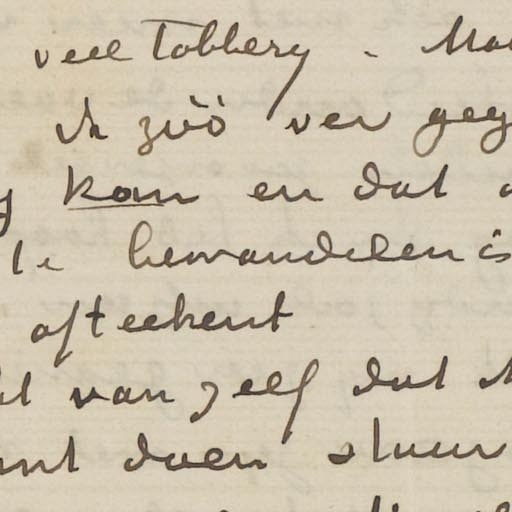 veel tobbery. Maa
ik zóó ver geg
kan en dat
te bewandelen is
afteekent
van zelf dat
doen stuur